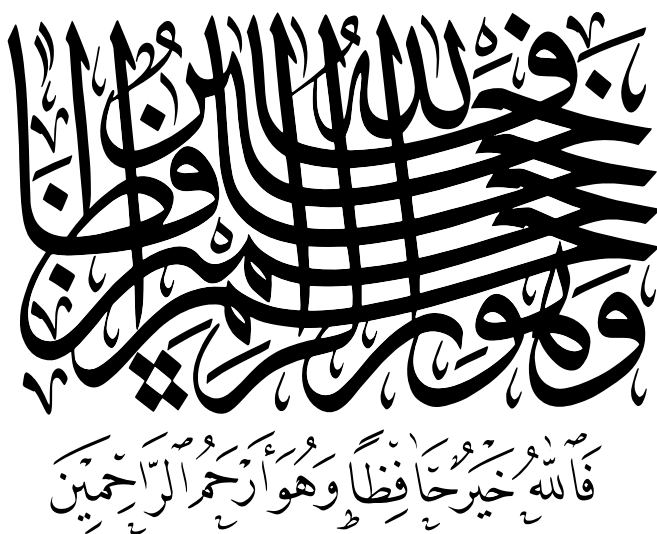 فالله خير حافظا وهو أرحم الراحمين
فَٱللَّهُ خَيْرٌ حَافِظًا وَهُوَ أَرْحَمُ ٱلرَّاحِمِينَ